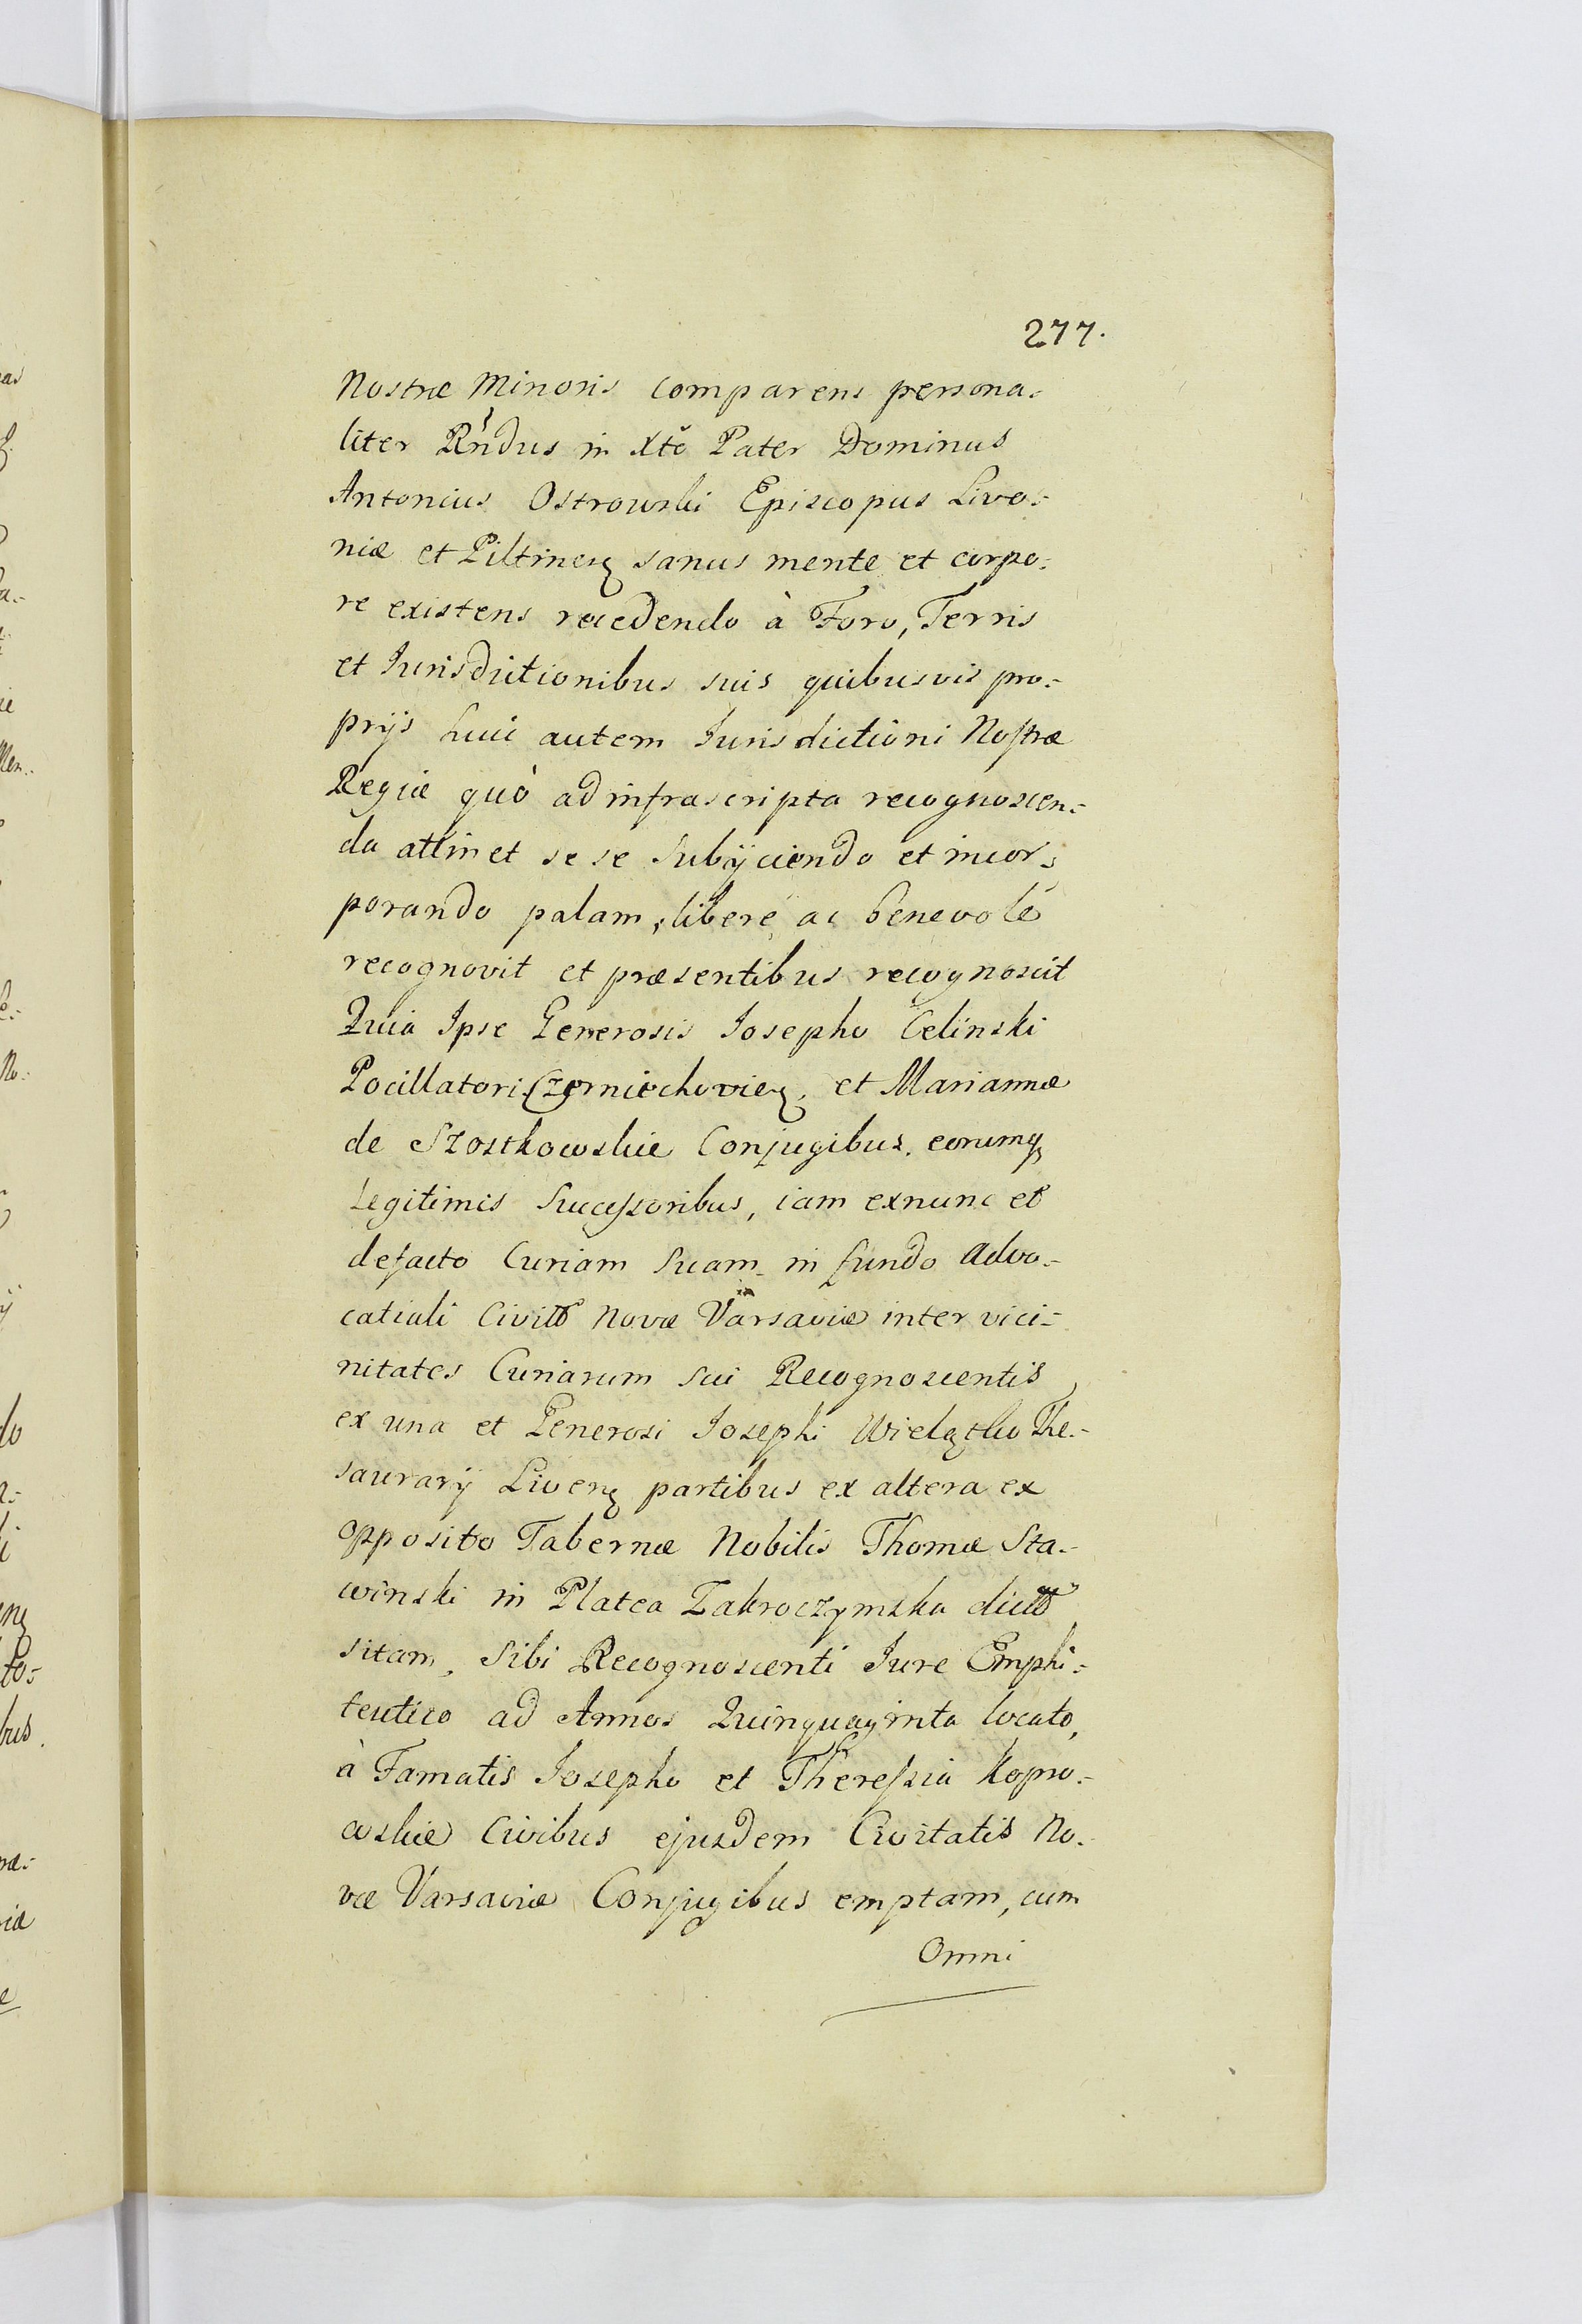 277.
Nostræ Minoris comparens persona-
liter Rñdus in Xtõ Pater Dominus
Antonius Ostrowski Episcopus Livo-
niæ et Piltinen̨ sanus mente et corpo-
re existens recedendo à Foro, Terris
et Jurisdictionibus suis quibusvis pro-
prijs huic autem Jurisdictioni Nostræ
Regiæ quò ad infrascripta recognoscen-
da attinet se se subÿciendo et incor-
porando palam, liberè ac benevolè
recognovit et præsentibus recognoscit
Quia Ipse Generosis Josepho Celinski
Pocillatori Czerniechovien̨. et Mariannæ
de Szostkowskie Conjugibus. eorumq̨
Legitimis Successoribus, iam exnunc et
defacto Curiam Suam in fundo Advo-
catiali Civitt Novæ Varsaviæ inter vici-
nitates Curiarum sui Recognoscentis
ex una et Generosi Josephi The-
saurarÿ Liven̨ partibus ex altera ex
opposito Tabernæ Nobilis Thomæ Sta-
winski in Platea Zakroczymska dictt
sitam, Sibi Recognoscenti Jure Emphi-
teutico ad Annos Quinquaginta locato,
à Famatis Josepho et Theressia Kopro-
wskie Civibus ejusdem Civitatis No-
væ Varsaviæ Conjugibus emptam, cum
Omni